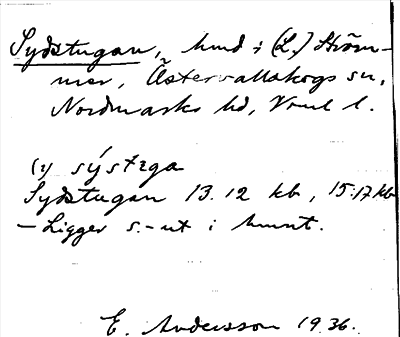 Sydstugan, hmd i (L.) Ström-
mer, Östervallskogs sn,
Nordmarks hd, Vrml l.
(i) sýstɜga
Sydstugan 13.12 kb, 15:17 kb
- Ligger s.-ut i hmnt.
E. Andersson 1936.